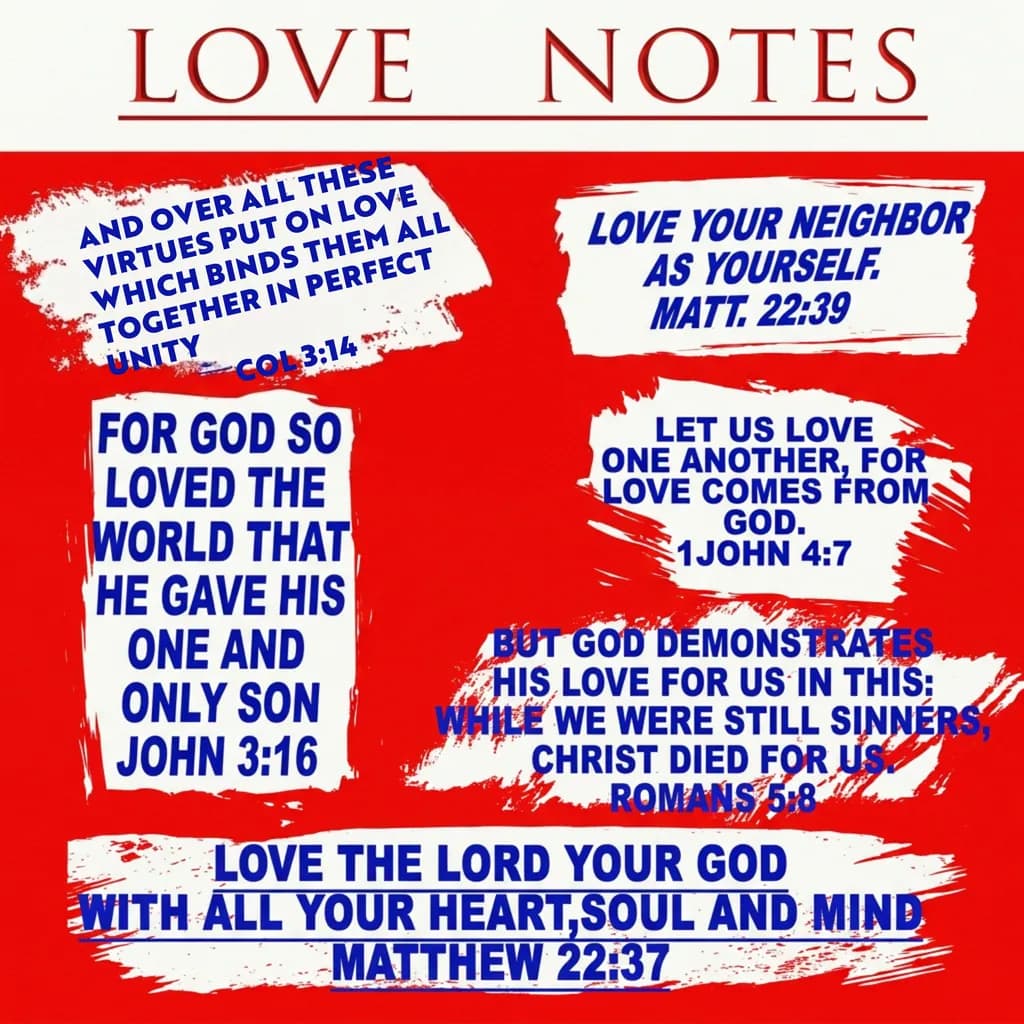 LOVE NOTES
AND OVER ALL THESE
VIRTUES PUT ON LOVE
WHICH BINDS THEM ALL
TOGETHER IN PERFECT
UNITY
COL 3:14
LOVE YOUR NEIGHBOR
AS YOURSELF.
MATT. 22:39
FOR GOD SO
LOVED THE
WORLD THAT
HE GAVE HIS
ONE AND
ONLY SON
JOHN 3:16
LET US LOVE
ONE ANOTHER, FOR
LOVE COMES FROM
GOD.
1JOHN 4:7
BUT GOD DEMONSTRATES
HIS LOVE FOR US IN THIS:
WHILE WE WERE STILL SINNERS,
CHRIST DIED FOR US.
ROMANS 5:8
LOVE THE LORD YOUR GOD
WITH ALL YOUR HEART,SOUL AND MIND
MATTHEW 22:37